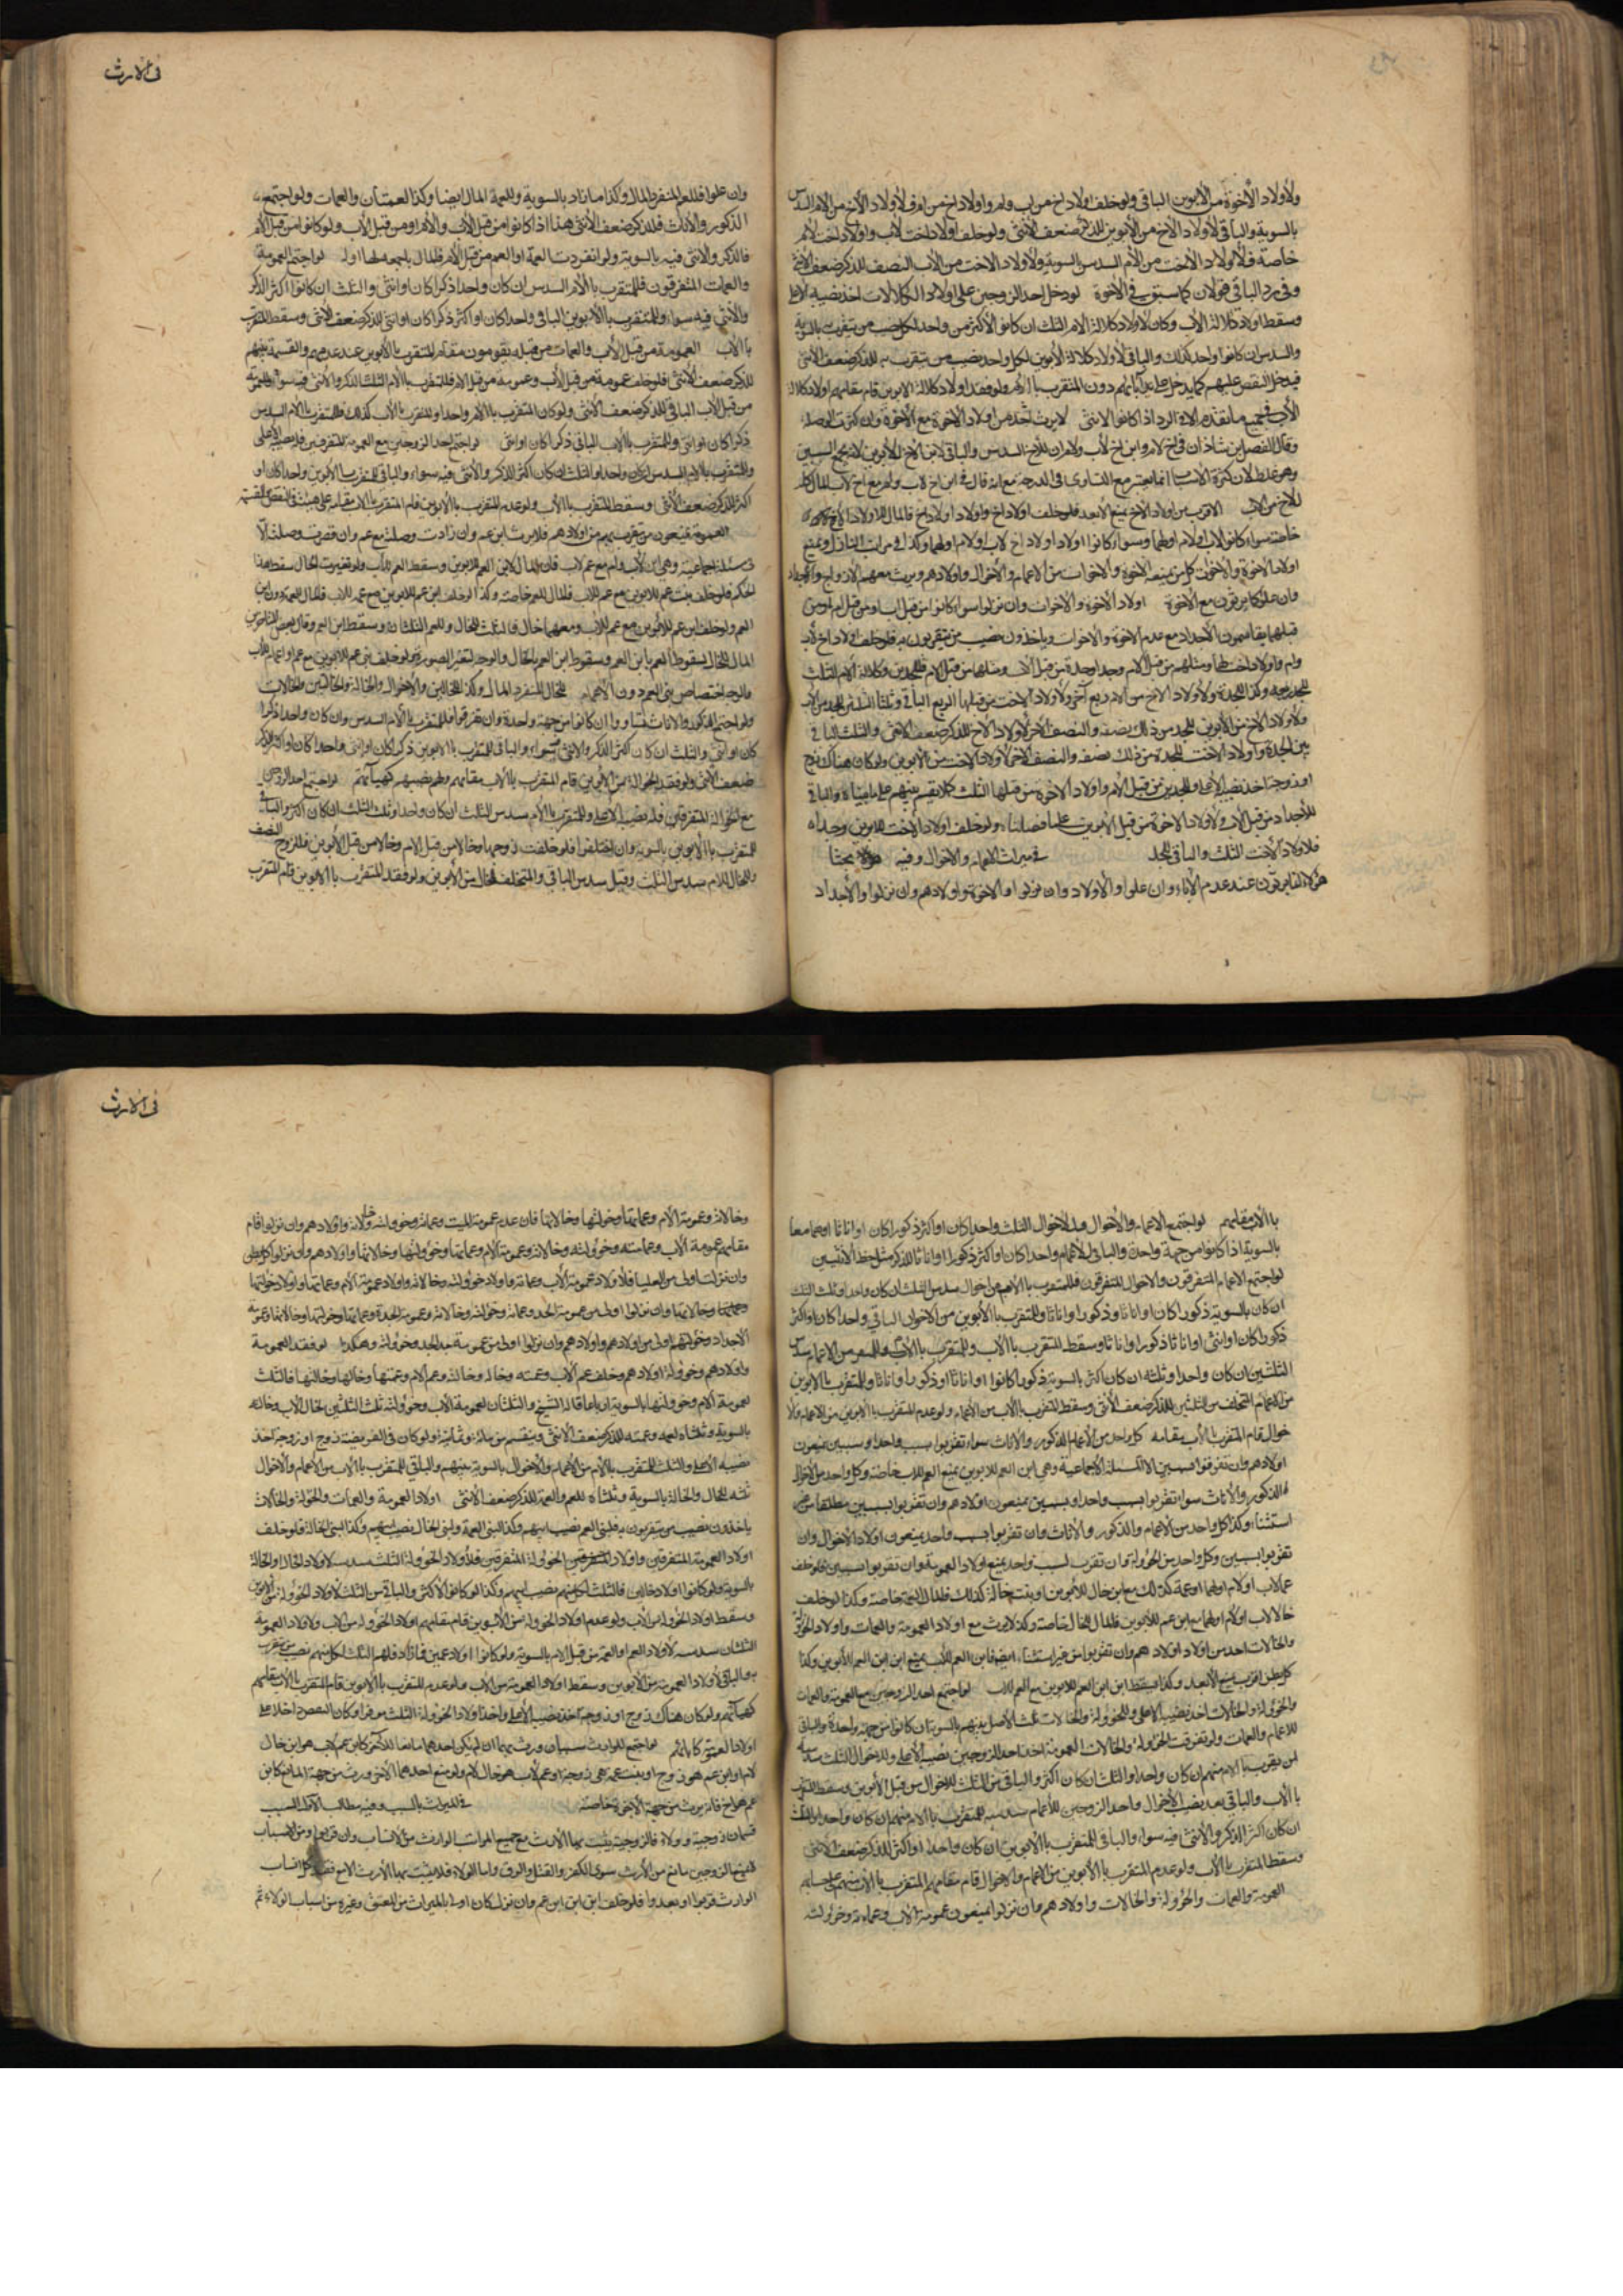 ولأولاد الأخوة من الأبوين الباقي ولو خلف اولاد اخ من اب وام واولاد اخ من ام فلأولاد الأخ من الام السدس
بالسوية والباقي لأولاد الأخ من الأبوين للذكر ضعف الأنثى ولو خلف اولاد اخت لأب واولاد اخت لأم
خاصة فلأولاد الأخت من الأم السدس بالسوية ولأولاد الاخت من الأب النصف للذكر ضعف الأنثى
وفي رد الباقي قولان كما سبق في الأخوة لو دخل احد الزوجين على اولاد الكلالات اخذ نصيبه الاعلى
وسقط اولاد كلالة الأب وكان لاولاد كلالة الام الثلث ان كانوا لأكثر من واحد لكل نصيب من يتقرب به بالسوية
والسدس ان كانوا لواحد كذلك والباقي لأولاد كلالة الأبوين لكل واحد نصيب من يتقرب به للذكر ضعف الانثى
فيدخل النقص عليهم كما يدخل على آبائهم دون المتقرب بالام ولو فقد اولاد كلالة الابوين قام مقامهم اولاد كلالة
الأب في جميع ما تقدم الا في الرد اذا كانوا لانثى لا يرث احد من اولاد الاخوة مع الأخوة وان كثرت الوصلة
وقال الفضل ابن شاذان في اخ لام وابن اخ لأب وام ان للأخ السدس والباقي لابن الأخ للأبوين لانه يجمع السببين
وهو غلط لان كثرة الاسباب انما تعتبر مع التساوي في الدرجة مع انه قال في ابن اخ لاب وام مع اخ لاب المال كله
للأخ من الاب الاقرب من اولاد الأخ يمنع الأبعد فلو خلف اولاد اخ واولاد اولاد اخ فالمال لأولاد الأخ
خاصة سواء كانوا لاب او لام او لهما وسواء كانوا اولاد اولاد اخ لاب او لام او لهما وكذا في مراتب النازل ويمنع
اولاد الأخوة والأخوات كل من يمنعه الأخوة والأخوات من الأعمام والأخوال واولادهم ويرث معهم الازواج والأجداد
وان علوا كما يرثون مع الأخوة اولاد الأخوة والأخوات وان نزلوا سواء كانوا من قبل اب او من قبل ام او من
قبلهما يقاسمون الأجداد مع عدم الأخوة والأخوات وياخذون نصيب من يتقربون به فلو خلف اولاد اخ لأب
وام واولاد اخت لهما ومثلهم من قبل الأم وجدا وجدة من قبل الأب ومثلهما من قبل الام فللجدين وكلالة الأم الثلث
للجد ربعه وكذا للجدة ولأولاد الأخ من الام ربع آخر ولأولاد الأخت من قبلها الربع الباقي وثلثا الثلثين للجد من الأب
ولأولاد الأخ من الأبوين للجد من ذلك نصفه والنصف الآخر لأولاد الأخ للذكر ضعف الأنثى والثلث الباقي
بين الجدة واولاد الاخت للجدة من ذلك نصفه والنصف الآخر لأولاد الأخت من الأبوين ولو كان هناك زوج
او زوجة اخذ نصيبه الأعلى وللجدين من قبل الأم واولاد الأخوة من قبلها الثلث كملا يقسم بينهم على ما بيناه والباقي
للأجداد من قبل الأب ولأولاد الاخوة من قبل الأبوين على ما فصلناه ولو خلف اولاد الأخت للابوين وجدا
فلأولاد الأخت الثلث والباقي للجد في ميراث الاعمام والأخوال وفيه بحثا
هؤلاء انما يرثون عند عدم الأباء وان علوا والأولاد وان نزلوا والاخوة واولادهم وان نزلوا والأجداد
في الارث
وان علوا فللعم المنفرد المال وكذا ما زاد بالسوية وللعمة المال ايضا وكذا العمتان والعمات ولو اجتمع
الذكور والأناث فللذكر ضعف الأنثى هذا اذا كانوا من قبل الأب والأم او من قبل الأب ولو كانوا من قبل الأم
فالذكر والانثى فيه بالسوية ولو انفردت العمة او العم من قبل الأم فالمال باجمعه لهما او له لو اجتمع العمومة
والعمات المتفرقون فللمتقرب بالأم السدس ان كان واحدا ذكرا كان او انثى والثلث ان كانوا اكثر الذكر
والأنثى فيه سواء وللمتقرب بالأبوين الباقي واحدا كان او اكثر ذكرا كان او انثى للذكر ضعف الأنثى وسقط المتقرب
بالاب العمومة من قبل الأب والعمات من قبله يقومون مقام المتقرب بالأبوين عند عدمهم والقسمة بينهم
للذكر ضعف الأنثى فلو خلف عمومة من قبل الأب وعمومة من قبل الام فللمتقرب بالأم الثلث الذكر والأنثى فيه سواء وللعمومة
من قبل الأب الباقي للذكر ضعف الأنثى ولو كان المتقرب بالأم واحدا والمتقرب بالأب كذلك فللمتقرب بالأم السدس
ذكرا كان او انثى وللمتقرب بالأب الباقي ذكرا كان او انثى لو اجتمع احد الزوجين مع العمومة المتفرقين فله نصيبه الاعلى
وللمتقرب بالأم السدس ان كان واحدا والثلث ان كان اكثر الذكر والأنثى فيه سواء والباقي للمتقرب بالأبوين واحدا كان او
اكثر للذكر ضعف الأنثى وسقط المتقرب بالأب ولو عدم المتقرب بالأبوين قام المتقرب بالأب مقامه على هيئته في النقص والقسمة
العمومة يمنعون من يتقرب بهم من اولادهم فلا يرث ابن عم وان زادت وصلته مع عم وان قصرت وصلته الا
في مسئلة اجماعية وهي ابن عم لأب وام مع عم لاب فان المال لابن العم للابوين وسقط العم للأب ولو تغيرت الحال سقط هذا
الحكم فلو خلف بنت عم للابوين مع عم للاب فالمال للعم خاصة وكذا لو خلف ابن عم للابوين مع عمة للاب فالمال للعمة دون ابن
العم ولو خلف ابن عم للأبوين مع عم للأب ومعهما خال فالثلث للخال وللعم الثلثان وسقط ابن العم وقال بعض المتأخرين
المال للخال لسقوط العم بابن العم وسقوط ابن العم بالخال والوجه تغير الصورة ولو خلف بني عم للابوين مع عم او اعمام للأب
فالوجه اختصاص بني العم دون الأعمام للخال المنفرد المال وكذا للخالين والاخوال والخالة والخالتين والخالات
ولو اجتمع الذكور والاناث تساووا ان كانوا من جهة واحدة وان تفرقوا فللمتقرب بالأم السدس وان كان واحدا ذكرا
كان او انثى والثلث ان كان اكثر الذكر والانثى سواء والباقي للمتقرب بالابوين ذكرا كان او انثى واحدا كان او اكثر للذكر
ضعف الأنثى ولو فقد الخوالة من الأبوين قام المتقرب بالأب مقامهم ولهم نصيبهم كهيأتهم لو اجتمع احد الزوجين
مع الخوالة المتفرقين فله نصيبه الاعلى وللمتقرب بالأم سدس الثلث ان كان واحدا وثلث الثلث ان كان اكثر والباقي
للمتقرب بالأبوين بالسوية وان اختلفوا فلو خلفت زوجها وخالا من قبل الام وخالا من قبل الأبوين فللزوج النصف
وللخال للام سدس الثلث وقيل سدس الباقي والمتخلف للخال من الأبوين ولو فقد المتقرب بالابوين قام المتقرب
بالأب مقامهم لو اجتمع الاعمام والأخوال فللاخوال الثلث واحدا كان او اكثر ذكورا كان او اناثا او هما معا
بالسوية اذا كانوا من جهة واحدة والباقي للأعمام واحدا كان او اكثر ذكورا او اناثا للذكر مثل حظ الأنثيين
لو اجتمع الاعمام المتفرقون والاخوال المتفرقون فللمتقرب بالأم من اخوال سدس الثلث ان كان واحدا وثلث الثلث
ان كان بالسوية ذكورا كان او اناثا او ذكورا واناثا وللمتقرب بالأبوين من الاخوال الباقي واحدا كان او اكثر
ذكورا كان او انثى او اناثا ذكورا واناثا وسقط المتقرب بالاب وللمتقرب بالأم من الاعمام سدس
الثلثين ان كان واحدا وثلثه ان كان اكثر بالسوية ذكورا كانوا او اناثا او ذكورا واناثا وللمتقرب بالابوين
من الاعمام المتخلف من الثلثين للذكر ضعف الأنثى وسقط المتقرب بالأب من الأعمام ولو عدم المتقرب بالأبوين من الاعمام والأ
خوال قام المتقرب بالأب مقامه كل واحد من الأعمام الذكور والأناث سواء تقربوا بسبب واحد او سببين يمنعون
اولادهم وان تفرقوا بسببين الا المسئلة الأجماعية وهي ابن العم للابوين يمنع العم للاب خاصة وكل واحد من الأخوال
الذكور والأناث سواء تقربوا بسبب واحد او بسببين يمنعون اولادهم وان تقربوا بسببين مطلقا من غير
استثناء وكذا كل واحد من الأعمام والذكور والأناث وان تقربوا بسبب واحد يمنعون اولاد الأخوال وان
تقربوا بسببين وكل واحد من الخؤولة وان تقرب بسبب واحد يمنع اولاد العمومة وان تقربوا بسببين فلو خلف
عما لاب او لام او لهما او عمة كذلك مع ابن خال للأبوين او بنت خالة كذلك فالمال للعمة خاصة وكذا لو خلف
خالا لاب او لأم او لهما مع ابن عم للأبوين فالمال للخال خاصة وكذا لا يرث مع اولاد العمومة والعمات واولاد الخؤولة
والخالات احد من اولاد اولادهم وان تقربوا من غير استثناء ايضا فابن العم للأب يمنع ابن ابن العم الأبوين وكذا
كل بطن اقرب يمنع الأبعد وكذا يسقط ابن ابن العم للابوين مع العم للاب لو اجتمع احد الزوجين مع العمومة والعمات
والخؤولة والخالات اخذ نصيبه الاعلى وللخؤولة والخالات ثلث الأصل بينهم بالسوية ان كانوا من جهة واحدة والباقي
للاعمام والعمات ولو تفرقت الخؤولة والخالات والعمومة اخذ احد الزوجين نصيبه الأعلى وللاخوال الثلث سدسه
لمن يتقرب بالأم منهم ان كان واحدا والثلث ان كان اكثر والباقي من الثلث للاخوال من قبل الأبوين وسقط المتقرب
بالأب والباقي بعد نصيب الأخوال واحد الزوجين للأعمام سدسه للمتقرب بالأم منهم ان كان واحدا والثلث
ان كان اكثر الذكر والأنثى فيه سواء والباقي للمتقرب بالأبوين ان كان واحدا او اكثر للذكر ضعف الأنثى
وسقط المتقرب بالأب ولو عدم المتقرب بالأبوين من الأعمام والاخوال قام مقامهم المتقرب بالأب منهم على حسابه
العمومة والعمات والخؤولة والخالات واولادهم وان نزلوا يمنعون عمومة الأب وعماته وخؤولته
في الارث
وخالاته وعمومة الأم وعماتها وخؤولتها وخالاتها فان عدم عمومة الميت وعماته وخؤولته وخالاته واولادهم وان نزلوا قام
مقامهم عمومة الأب وعماته وخؤولته وخالاته وعمومة الأم وعماتها وخؤولتها وخالاتها واولادهم وان نزلوا كل بطن
وان نزلت اولى من العليا فلأولاد عمومة الأب وعماته واولاد خؤولته وخالاته واولاد عمومة الأم وعماتها واولاد خؤولتها
وخالاتها وان نزلوا اولى من عمومة الجد وعماته وخؤولته وخالاته وعمومة الجدة وعماتها وخؤولتها وخالاتها وعمومة
الاجداد وخؤولتهم اولى من اولادهم واولادهم وان نزلوا اولى من عمومة جد الجد وخؤولته وهكذا لو فقد العمومة
واولادهم وخؤولة اولادهم وخلف عم الأب وعمته وخاله وخالته وعم الام وعمتها وخالها وخالتها فالثلث
لعمومة الأم وخؤولتها بالسوية ارباعا قاله الشيخ والثلثان لعمومة الأب وخؤولته ثلث الثلثين لخال الأب وخالته
بالسوية وثلثاه لعمه وعمته للذكر ضعف الأنثى وينقسم من مائة وثمانية ولو كان في الفريضة زوج او زوجة اخذ
نصيبه الأعلى والثلث للمتقرب بالأم من الأعمام والأخوال بالسوية بينهم والباقي للمتقرب بالأب من الأعمام والأخوال
ثلثه للخال والخالة بالسوية وثلثاه للعم والعمة للذكر ضعف الأنثى اولاد العمومة والعمات والخؤولة والخالات
ياخذون نصيب من يتقربون به فلبني العم نصيب ابيهم وكذا لبني العمة ولبني الخال نصيب ابيهم وكذا لبني الخالة فلو خلف
اولاد العمومة المتفرقين واولاد الخؤولة المتفرقين فلأولاد الخؤولة الثلث سدسه لاولاد الخال او الخالة
بالسوية ولو كانوا اولاد خالين فالثلث لكل منهم نصيب ابيهم وكذا لو كانوا لأكثر والباقي من الثلث لأولاد الخؤولة من الأبوين
وسقط اولاد الخؤولة من الأب ولو عدم اولاد الخؤولة من الأبوين قام مقامهم اولاد الخؤولة من الأب ولاولاد العمومة
الثلثان سدسه لأولاد العم او العمة من قبل الأم بالسوية ولو كانوا اولاد عمين فما زاد فلهم الثلث لكل منهم نصيب من يتقرب
به والباقي لأولاد العمومة من الأبوين وسقط اولاد العمومة من الأب ولو عدم المتقرب بالأبوين قام المتقرب بالأب مقامهم
كهيأتهم ولو كان هناك زوج او زوجة اخذ نصيبه الأعلى واخذ اولاد الخؤولة الثلث موفرا وكان النقص داخلا على
اولاد العمومة كابائهم لو اجتمع للوارث سببان ورث بهما ان لم يكن احدهما مانعا للآخر كابن عم لاب هو ابن خال
لام او ابن عم هو زوج او بنت عمة هي زوجة او عم لاب هو خال لام ولو منع احدهما الآخر ورث من جهة المانع كابن
عم هو اخ فانه يرث من جهة الأخوة خاصة في الميراث بالسبب وفيه مطالب الأول السبب
قسمان زوجية وولاء فالزوجية يثبت بها الأرث مع جميع المراتب الوارث من الأنساب وان قربوا ومن الاسباب
الزوجين مانع من الأرث سوى الكفر والقتل والرق واما الولاء فلا يثبت بها الأرث الا مع فقد كل انساب
الوارث قربوا او بعدوا فلو خلف ابن ابن ابن عم وان نزل كان اولى بالميراث من المعتق وغيره من اسباب الولاء ثم